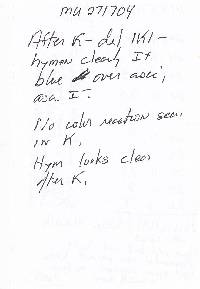 MU 271704
After K- del IKI -
hymen clearly I+
blue over asci,
asci I-.
No color reaction seen
in K.
Hym looks clear
after K.